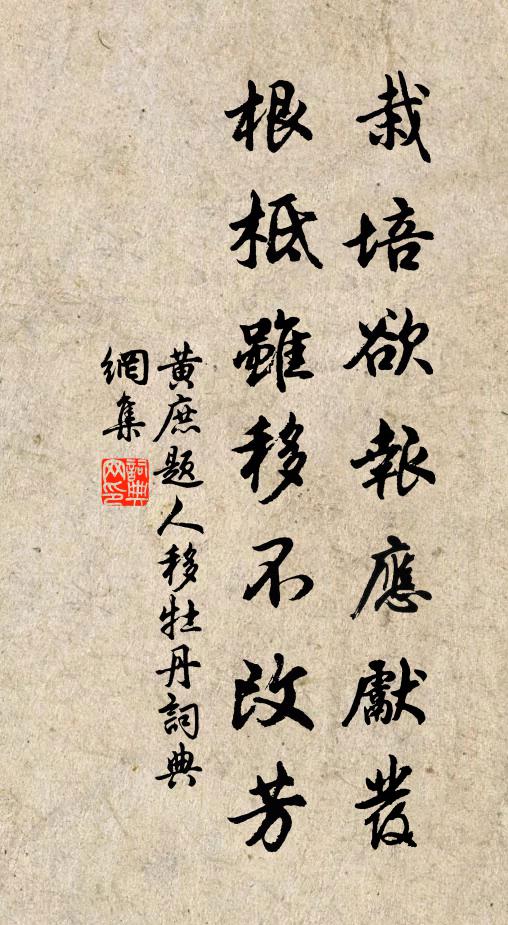 栽培欲報應獻發
根柢雖移不改芳
黃庶題人移牡丹詞典
網集
詞典
网印